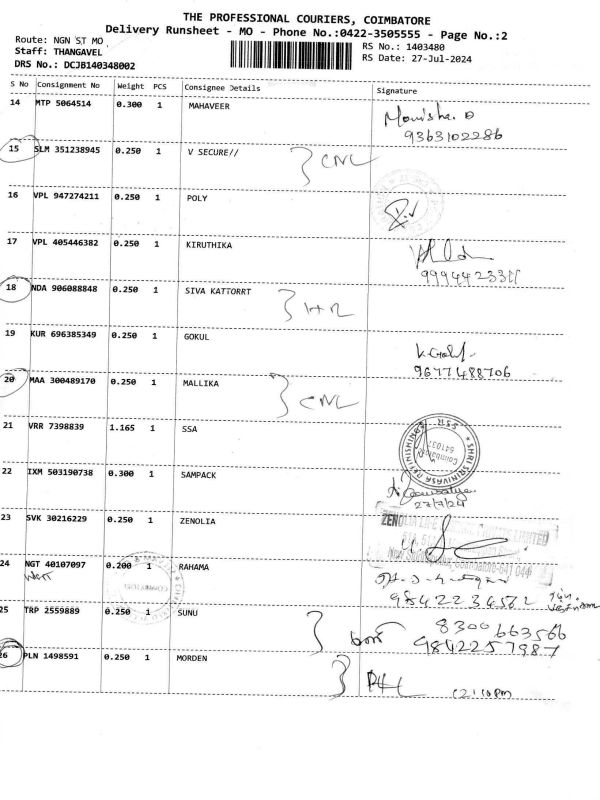 THE PROFESSIONAL COURIERS, COIMBATORE
Delivery Runsheet - MO - Phone No.:0422-3505555 - Page No.:2
Route: NGN ST MO
RS No.: 1403480
Staff: THANGAVEL
RS Date: 27-Jul-2024
DRS No.: DCJB140348002
S No Consignment No Weight PCS Consignee Details Signature
14 MTP 5064514 0.300 1 MAHAVEER Monisha. D
9363102286
15 SLM 351238945 0.250 1 V SECURE// CNL
16 VPL 947274211 0.250 1 POLY
17 VPL 405446382 0.250 1 KIRUTHIKA
18 NDA 906088848 0.250 1 SIVA KATTORRT
19 KUR 696385349 0.250 1 GOKUL
9677488706
20 MAA 300489170 0.250 1 MALLIKA CNL
21 VRR 7398839 1.165 1 SSA
SHRI SRINIVASA REFINISHING
Coimbatore
641037
SSR
22 IXM 503190738 0.300 1 SAMPACK
27/7/24
23 SVK 30216229 0.250 1 ZENOLIA
24 NGT 40107097 0.200 1 RAHAMA
25 TRP 2559889 0.250 1 SUNU 8300663566
9842257987
26 PLN 1498591 0.250 1 MORDEN